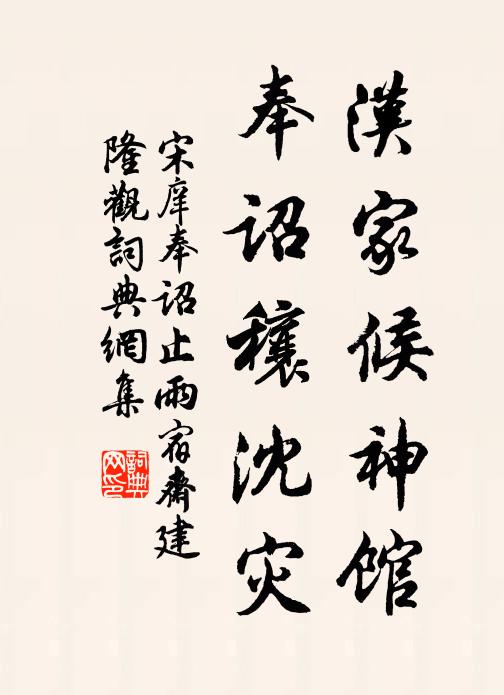 漢家候神館
奉詔穰沈灾
宋庠奉詔止雨宿齋建
隆觀詞典網集
詞典
网印